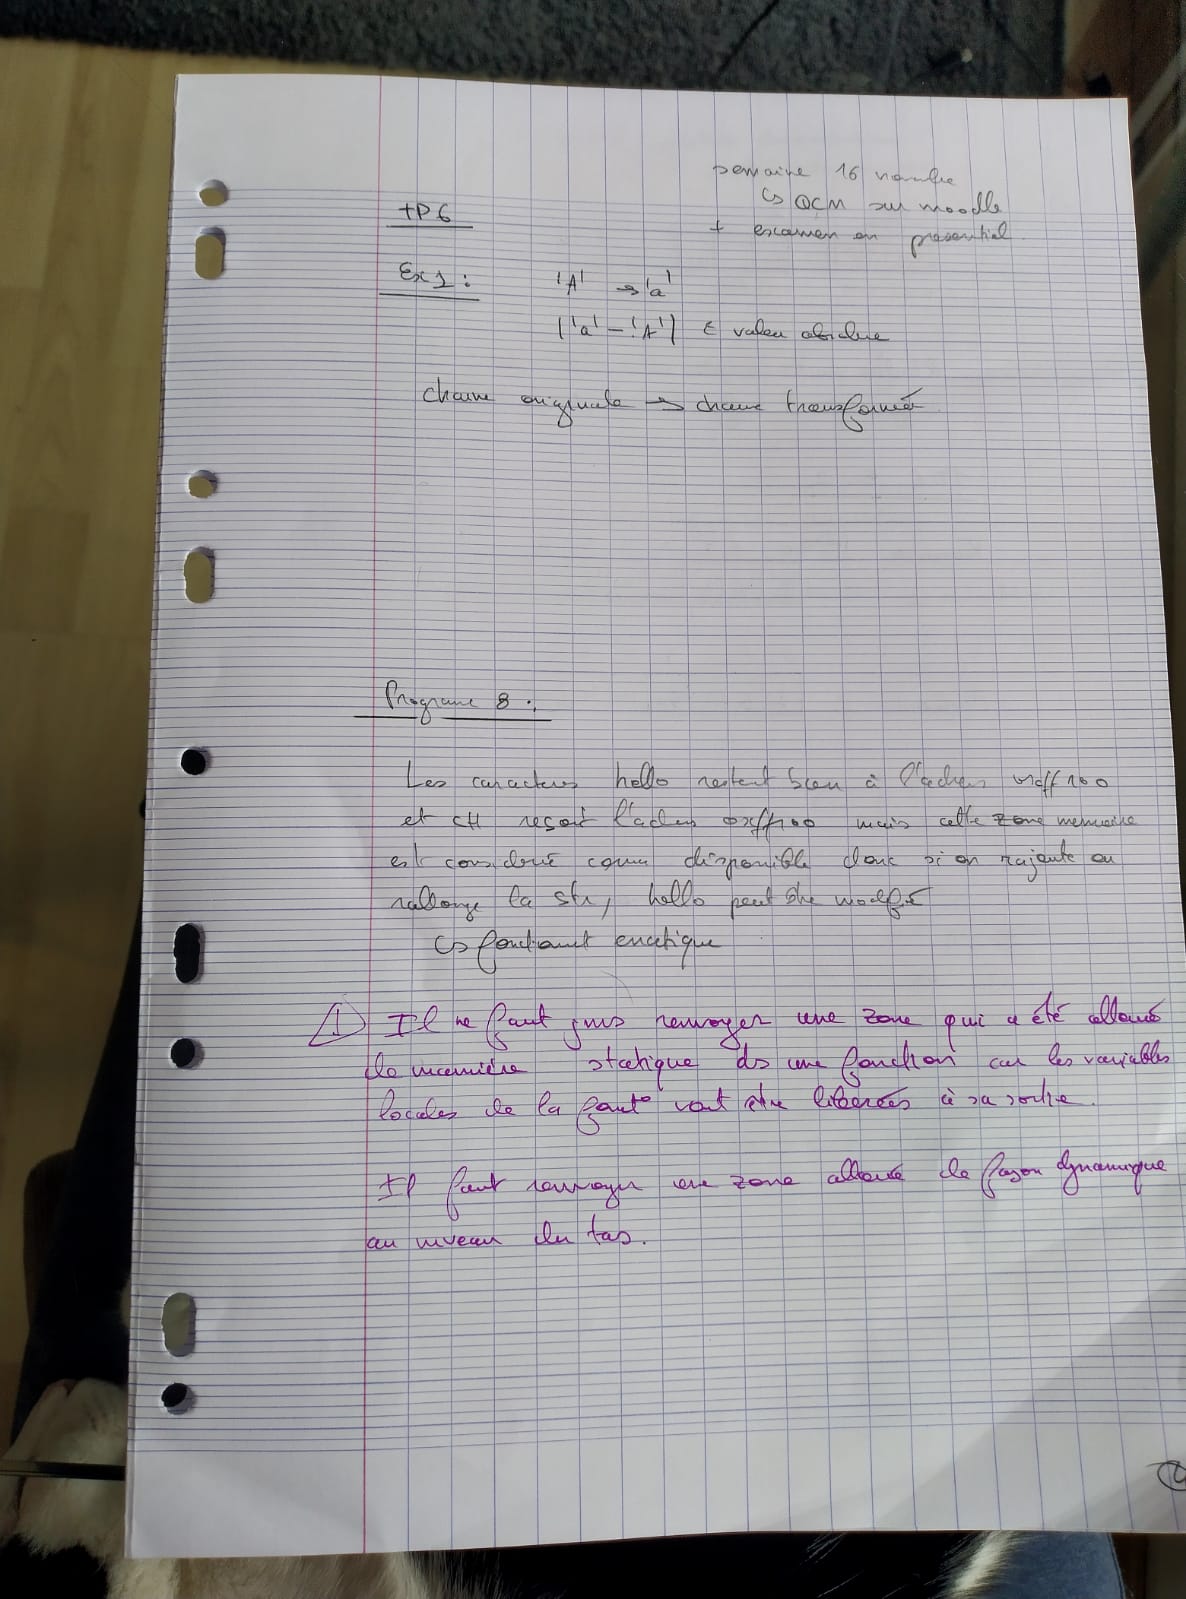 semaine 16 novembre
↳ QCM sur moodle
+ examen en présentiel
TP6
Ex1 :
'A' → 'a'
|'a' - 'A'| ← valeur absolue
chaine originale → chaine transformée
Programe 8 :
Les caractères hello restent bien à l'adress 0xff100
et ch reçoit l'adress 0xff100 mais cette zone memoire
est considéré comme disponible donc si on rajoute ou
rallonge la str, hello peut être modifié
↳ fonctionnt erratique
⚠ Il ne faut pas renvoyer une zone qui a été alloué
de manière statique ds une fonction car les variables
locales de la fonct° vont être libérées à sa sortie.
Il faut renvoyer une zone alloué de façon dynamique
au niveau du tas.